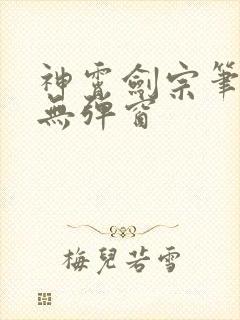 神霄劍宗筆
無彈窗
梅兒若雪